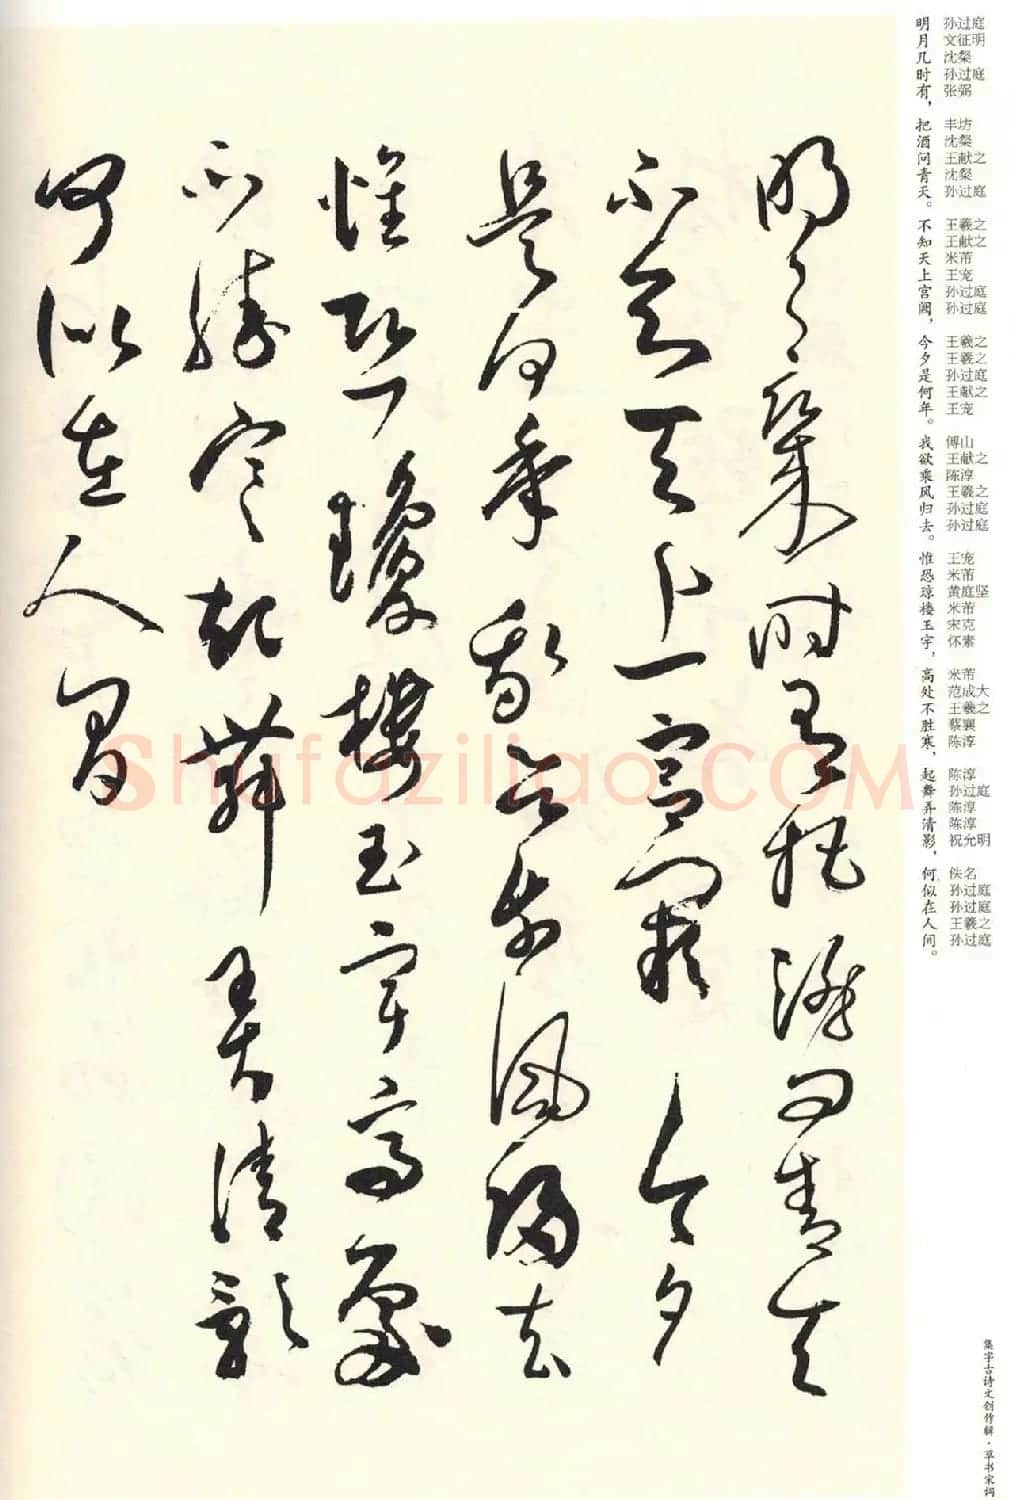 明 孙过庭
月 文征明
几 沈粲
时 孙过庭
有， 张弼
把 丰坊
酒 沈粲
问 王献之
青 沈粲
天。 孙过庭
不 王羲之
知 王献之
天 米芾
上 王宠
宫 孙过庭
阙， 孙过庭
今 王羲之
夕 王羲之
是 孙过庭
何 王献之
年。 王宠
我 傅山
欲 王献之
乘 陈淳
风 王羲之
归 孙过庭
去。 孙过庭
惟 王宠
恐 米芾
琼 黄庭坚
楼 米芾
玉 宋克
宇， 怀素
高 米芾
处 范成大
不 王羲之
胜 蔡襄
寒， 陈淳
起 陈淳
舞 孙过庭
弄 陈淳
清 陈淳
影， 祝允明
何 佚名
似 孙过庭
在 孙过庭
人 王羲之
间。 孙过庭
集字古诗文创作辑·草书宋词
明月幾時有把酒問青天
不知天上宫闕今夕
是何年我欲乘風歸去
惟恐瓊樓玉宇高處
不勝寒起舞弄清影
何似在人間
Shufaziliao.COM